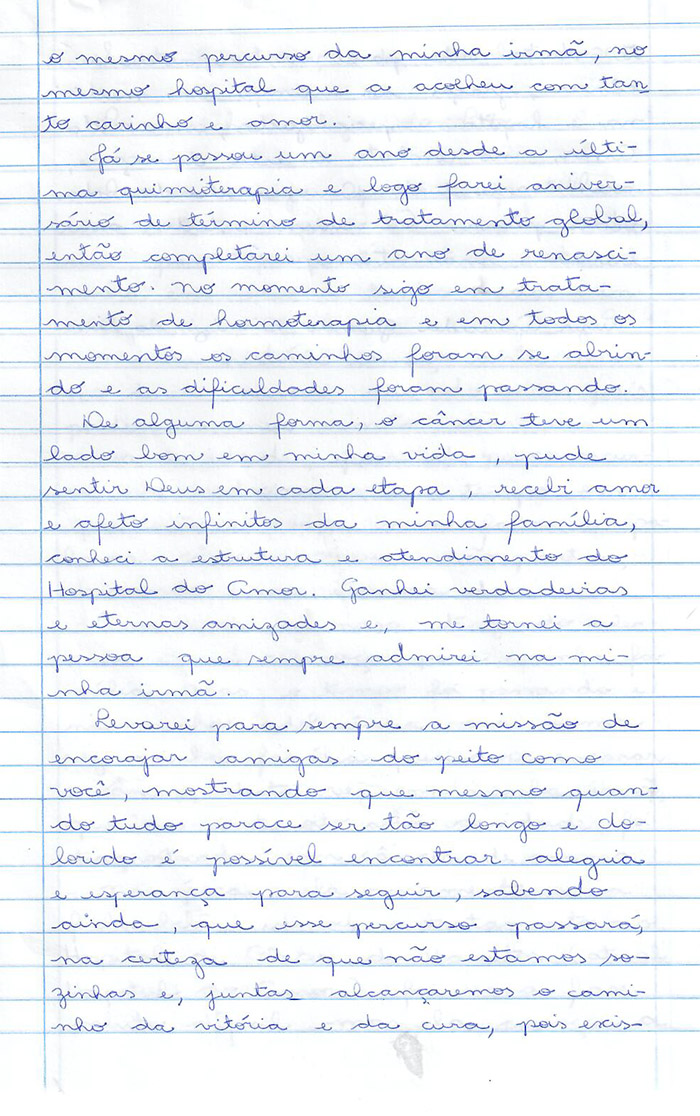 o mesmo percurso da minha irmã, no
mesmo hospital que a acolheu com tan
to carinho e amor.
Já se passou um ano desde a últi-
ma quimioterapia e logo farei aniver-
sário de término de tratamento global,
então completarei um ano de renasci-
mento. No momento sigo em trata-
mento de hormoterapia e em todos os
momentos os caminhos foram se abrin-
do e as dificuldades foram passando.
De alguma forma, o câncer teve um
lado bom em minha vida, pude
sentir Deus em cada etapa, recebi amor
e afeto infinitos da minha família,
conheci a estrutura e atendimento do
Hospital do Amor. Ganhei verdadeiras
e eternas amizades e, me tornei a
pessoa que sempre admirei na mi-
nha irmã.
Levarei para sempre a missão de
encorajar amigas do peito como
você, mostrando que mesmo quan-
do tudo parace ser tão longo e do-
lorido é possível encontrar alegria
e esperança para seguir, sabendo
ainda, que esse percurso passará,
na certeza de que não estamos so-
zinhas e, juntas alcançaremos o cami-
nho da vitória e da cura, pois exis-